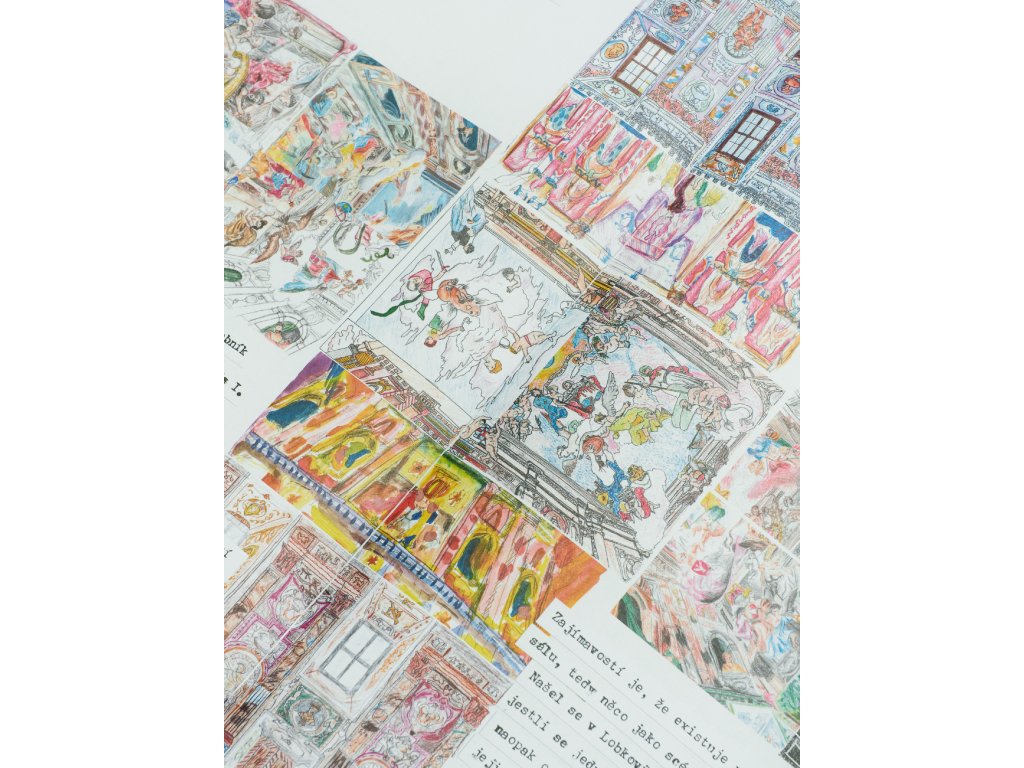 I.
Zajímavostí je, že existuje
sálu, tedw něco jako scé
Našel se v Lobkov
jestli se jedn
naopak
jeji